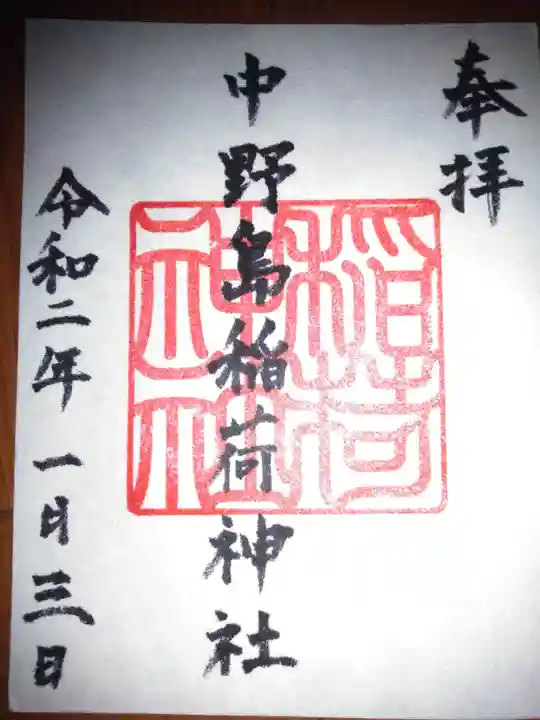 奉拝
中野島稲荷神社
稲荷
神社
令和二年一月三日